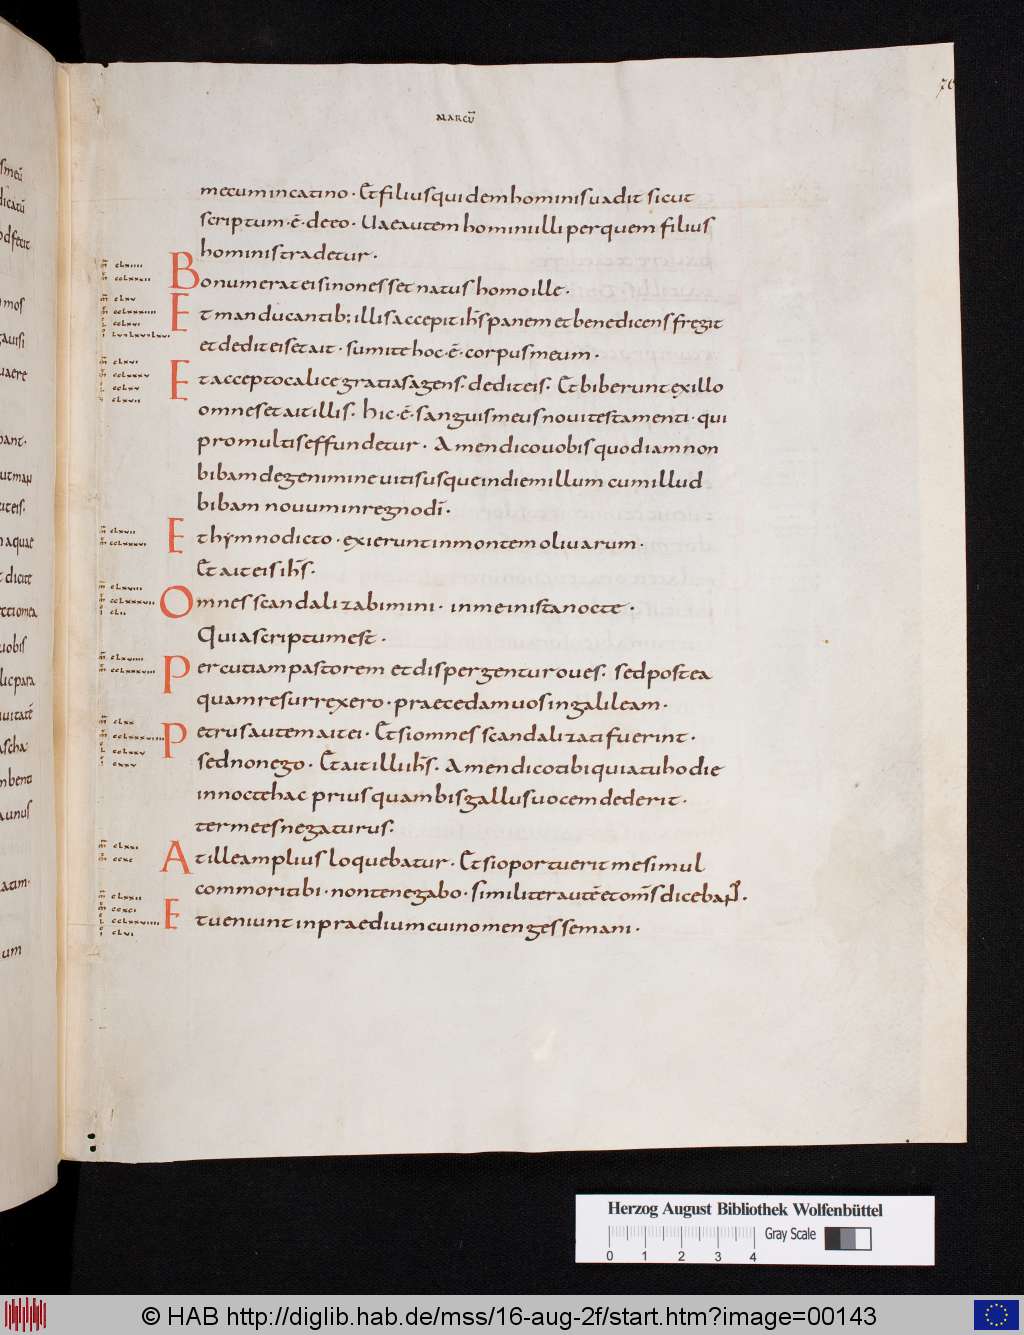 MARCŪ
70
mecum in catino · Et filius quidem hominis uadit sicut
scriptum · ē · de eo · Uae autem homini illi per quem filius
hominis tradetur ·
Bonum erat ei si non esset natus homo ille ·
Et manducantib; illis accepit ihs̄ panem et benedicens fregit
et dedit eis et ait · sumite hoc · ē · corpus meum ·
Et accepto calice gratias agens · dedit eis · Et biberunt ex illo
omnes et ait illis · hic · ē · sanguis meus noui testamenti · qui
pro multis effundetur · Amen dico uobis quod iam non
bibam de genimine uitis usque in diem illum cum illud
bibam nouum in regno dī ·
Et hymno dicto · exierunt in montem oliuarum ·
Et ait eis ihs̄ ·
Omnes scandalizabimini · in me in ista nocte ·
Quia scriptum est ·
Percutiam pastorem et dispergentur oues · sed postea
quam resurrexero · praecedam uos in galileam ·
Petrus autem ait ei · Et si omnes scandalizati fuerint ·
sed non ego · Et ait illi ihs̄ · Amen dico tibi quia tu hodie
in nocte hac prius quam bis gallus uocem dederit ·
ter me es negaturus ·
At ille amplius loquebatur · Et si oportuerit me simul
commori tibi · non te negabo · similiter autē et oms̄ dicebant ·
Et ueniunt in praedium cui nomen gessemani ·
Herzog August Bibliothek Wolfenbüttel
Gray Scale
0 1 2 3 4
© HAB http://diglib.hab.de/mss/16-aug-2f/start.htm?image=00143